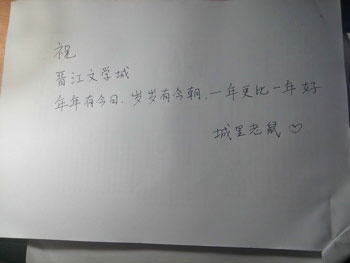 祝
晋江文学城
年年有今日、岁岁有今朝、一年更比一年好
城里老鼠♡